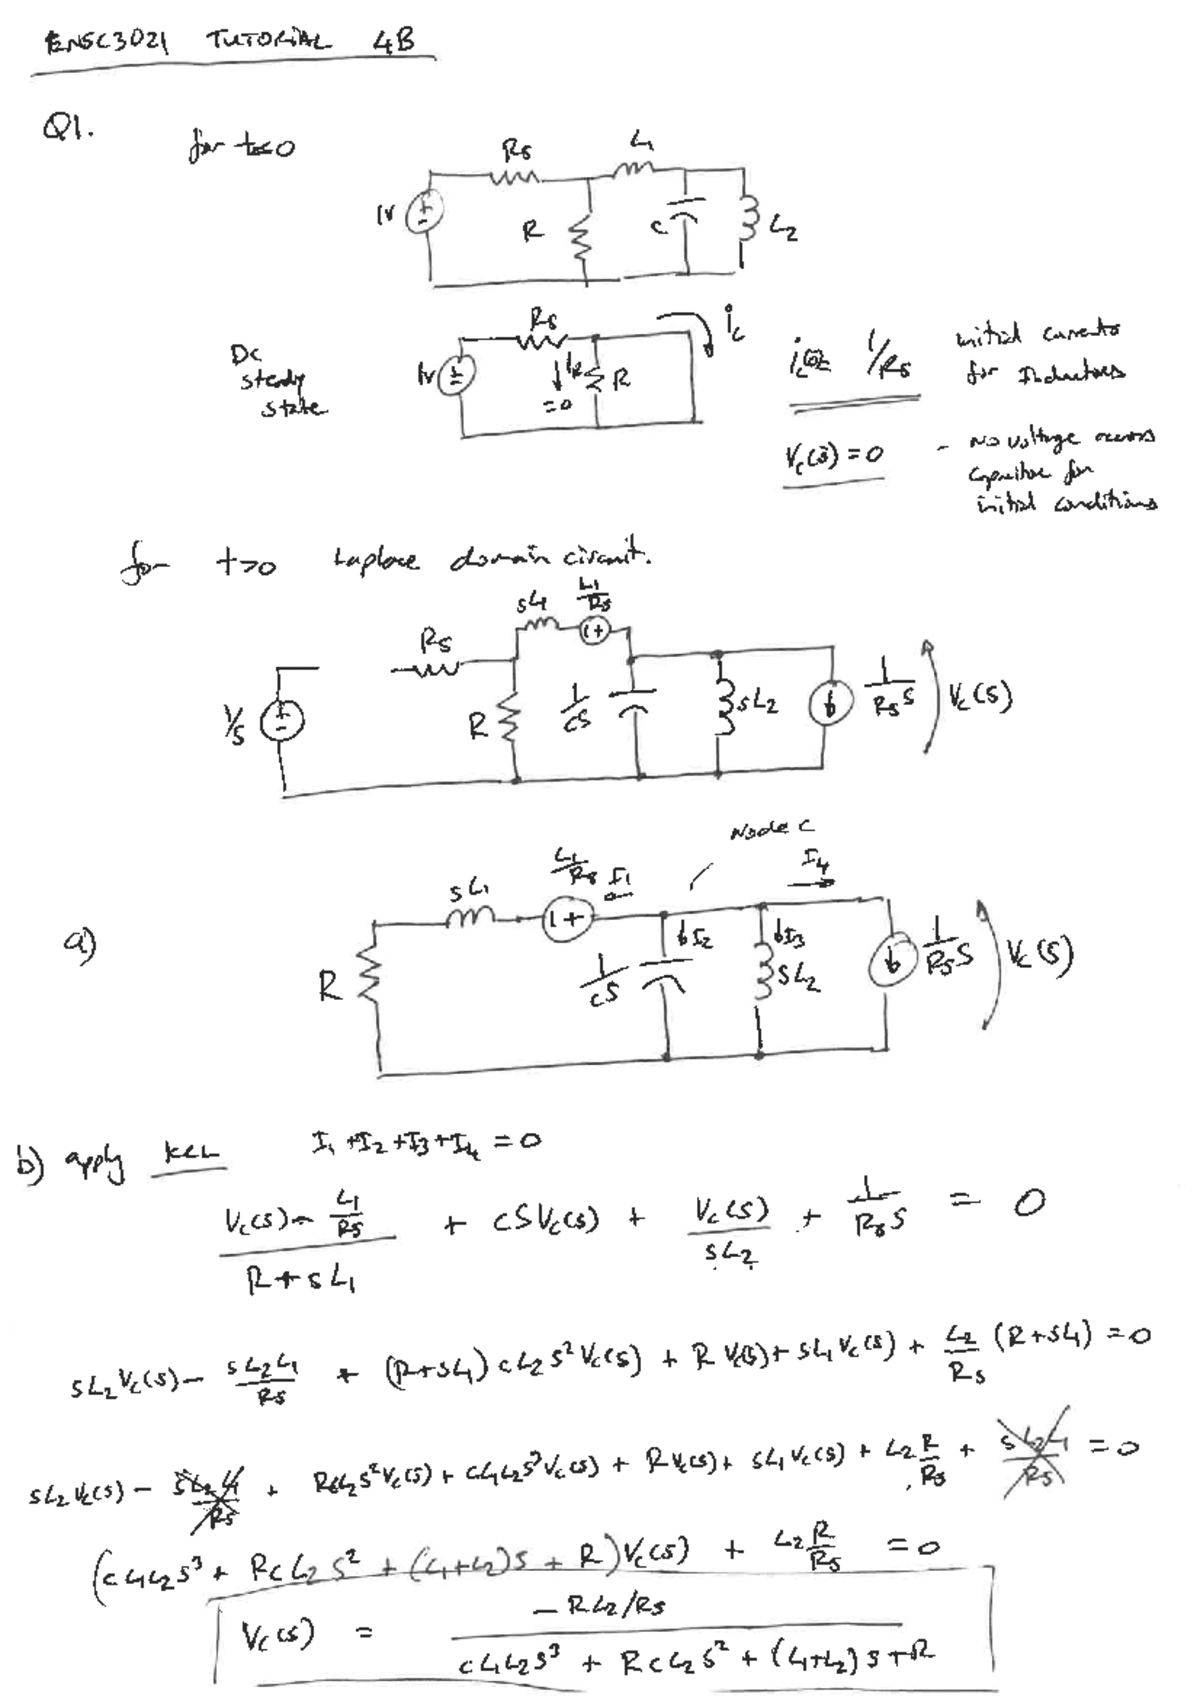 ENSC3021 TUTORIAL 4B
Q1. for t<0
Rs L1
1V R C L2
Dc steady state
Rs ic
1V IR =0 R
ic = 1/Rs initial currents for Inductors
Vc(s) = 0 - No voltage across capacitor for initial conditions
for t>0 Laplace domain circuit.
sL1 L1/Rs
Rs
1/s R 1/cs sL2 1/RsS Vc(s)
a) Node C
sL1 L1/Rs I1 I4
R 1/cs I2 I3 sL2 1/RsS Vc(s)
b) apply KCL I1 + I2 + I3 + I4 = 0
(Vc(s) - L1/Rs)/(R + sL1) + cSVc(s) + Vc(s)/sL2 + 1/RsS = 0
sL2Vc(s) - sL2L1/Rs + (R+sL1)cL2s²Vc(s) + RVc(s) + sL1Vc(s) + L2/Rs (R+sL1) = 0
sL2Vc(s) - sL2L1/Rs + RcL2s²Vc(s) + cL1L2s³Vc(s) + RVc(s) + sL1Vc(s) + L2R/Rs + sL2L1/Rs = 0
(cL1L2s³ + RcL2s² + (L1+L2)s + R)Vc(s) + L2R/Rs = 0
Vc(s) = (-RL2/Rs)/(cL1L2s³ + RcL2s² + (L1+L2)s + R)